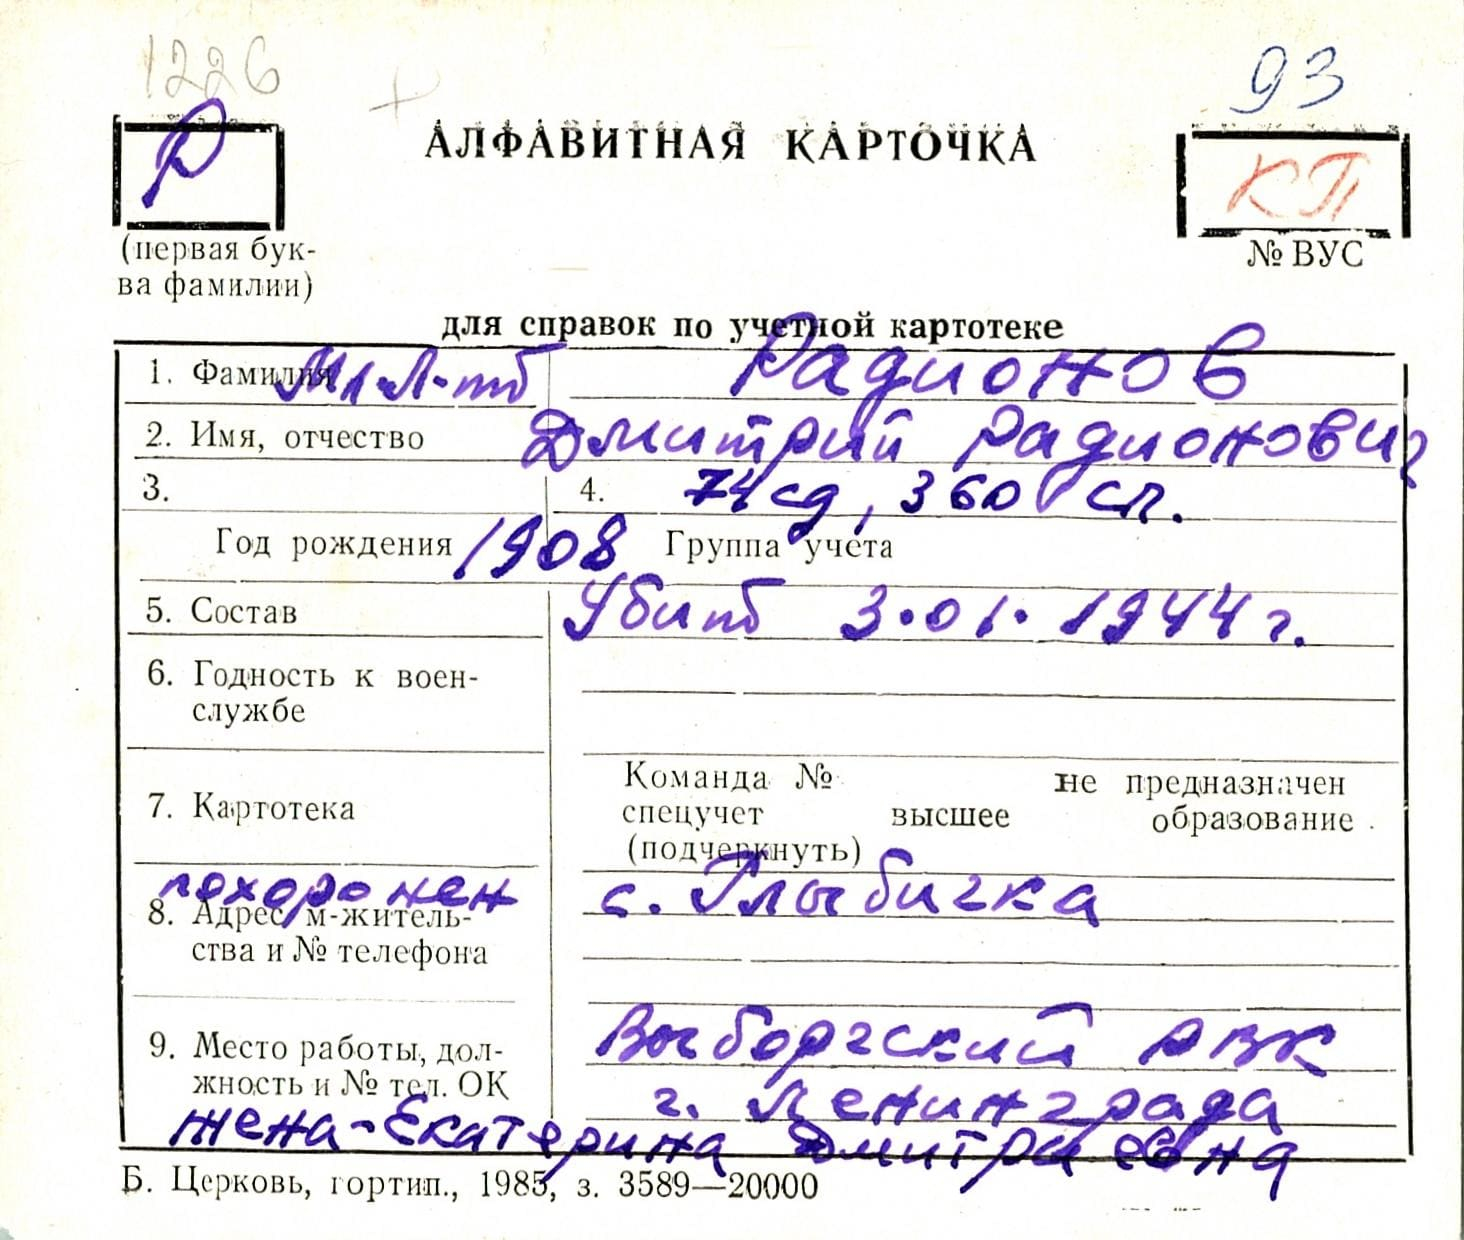 1226
93
Р
АЛФАВИТНАЯ КАРТОЧКА
КП
(первая бук-
ва фамилии)
№ ВУС
для справок по учетной картотеке
1. Фамилия Мл Л-тб Радионов
2. Имя, отчество Дмитрий Радионович
3. 4. 74 сд, 360 сп.
Год рождения 1908 Группа учета
5. Состав Убит 3.01.1944 г.
6. Годность к воен-
службе
7. Картотека
Команда № не предназначен
спецучет высшее образование
(подчеркнуть)
похоронен с. Глыбичка
8. Адрес м-житель-
ства и № телефона
9. Место работы, дол-
жность и № тел. ОК
Выборгский РВК
г. Ленинграда
жена-Екатерина Дмитриевна
Б. Церковь, гортип., 1985, з. 3589—20000